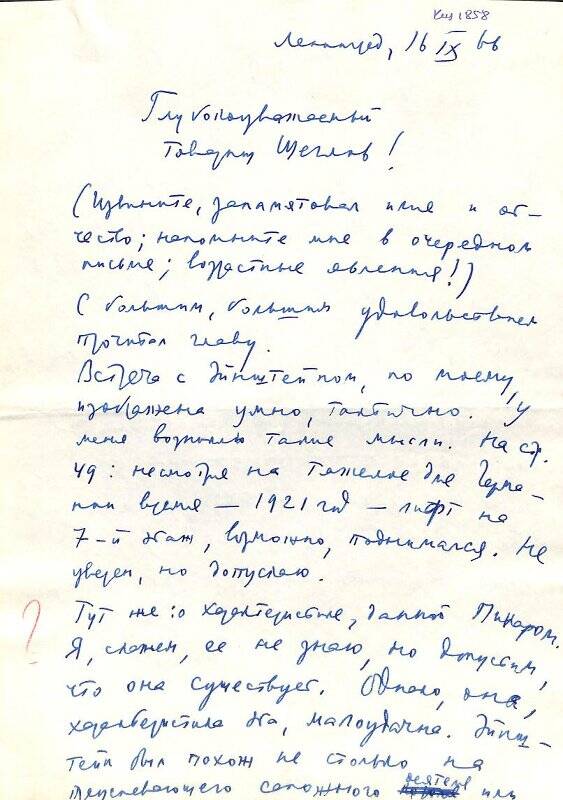 Кип 1858
Ленинград, 16 IX 66
Глубокоуважаемый
товарищ Щеглов!
(Извините, запамятовал имя и от-
чество; напомните мне в очередном
письме; возрастные явления!)
С большим, большим удовольствием
прочитал главу.
Встреча с Эйнштейном, по моему,
изображена умно, тактично. У
меня возникли такие мысли. На стр.
49: несмотря на тяжелое для Герма-
нии время — 1921 год — лифт на
7-й этаж, возможно, поднимался. Не
уверен, но допускаю.
? Тут же: о характеристике, данной Пикаром.
Я, скажем, ее не знаю, но допустим,
что она существует. Однако, она,
характеристика эта, малоудачна. Эйнш-
тейн был похож не столько на
преуспевающего сапожного деятеля или